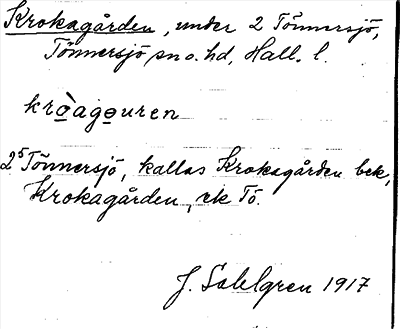 Krokagården, under 2 Tönnersjö,
Tönnersjö sn o. hd, Hall. l.
kròagouren
2⁵ Tönnersjö, kallas Krokagården bek,
Krokagården, ek Tö.
J. Sahlgren 1917